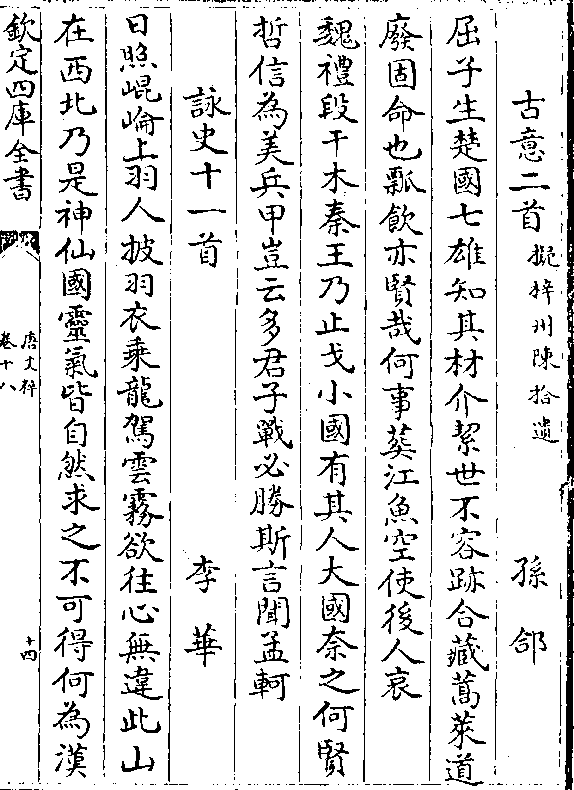 古意二首擬梓州陳拾遺 孫郃
屈子生楚國七雄知其材介絜世不容跡合藏蒿萊道
廢固命也瓢飲亦賢哉何事葬江魚空使後人哀
魏禮段干木秦王乃止戈小國有其人大國奈之何賢
哲信為美兵甲豈云多君子戰必勝斯言聞孟軻
詠史十一首 李華
日照崐崘上羽人披羽衣乘龍駕雲霧欲往心無違此山
在西北乃是神仙國靈氣皆自然求之不可得何為漢
欽定四庫全書
唐文粹
卷十八
十四